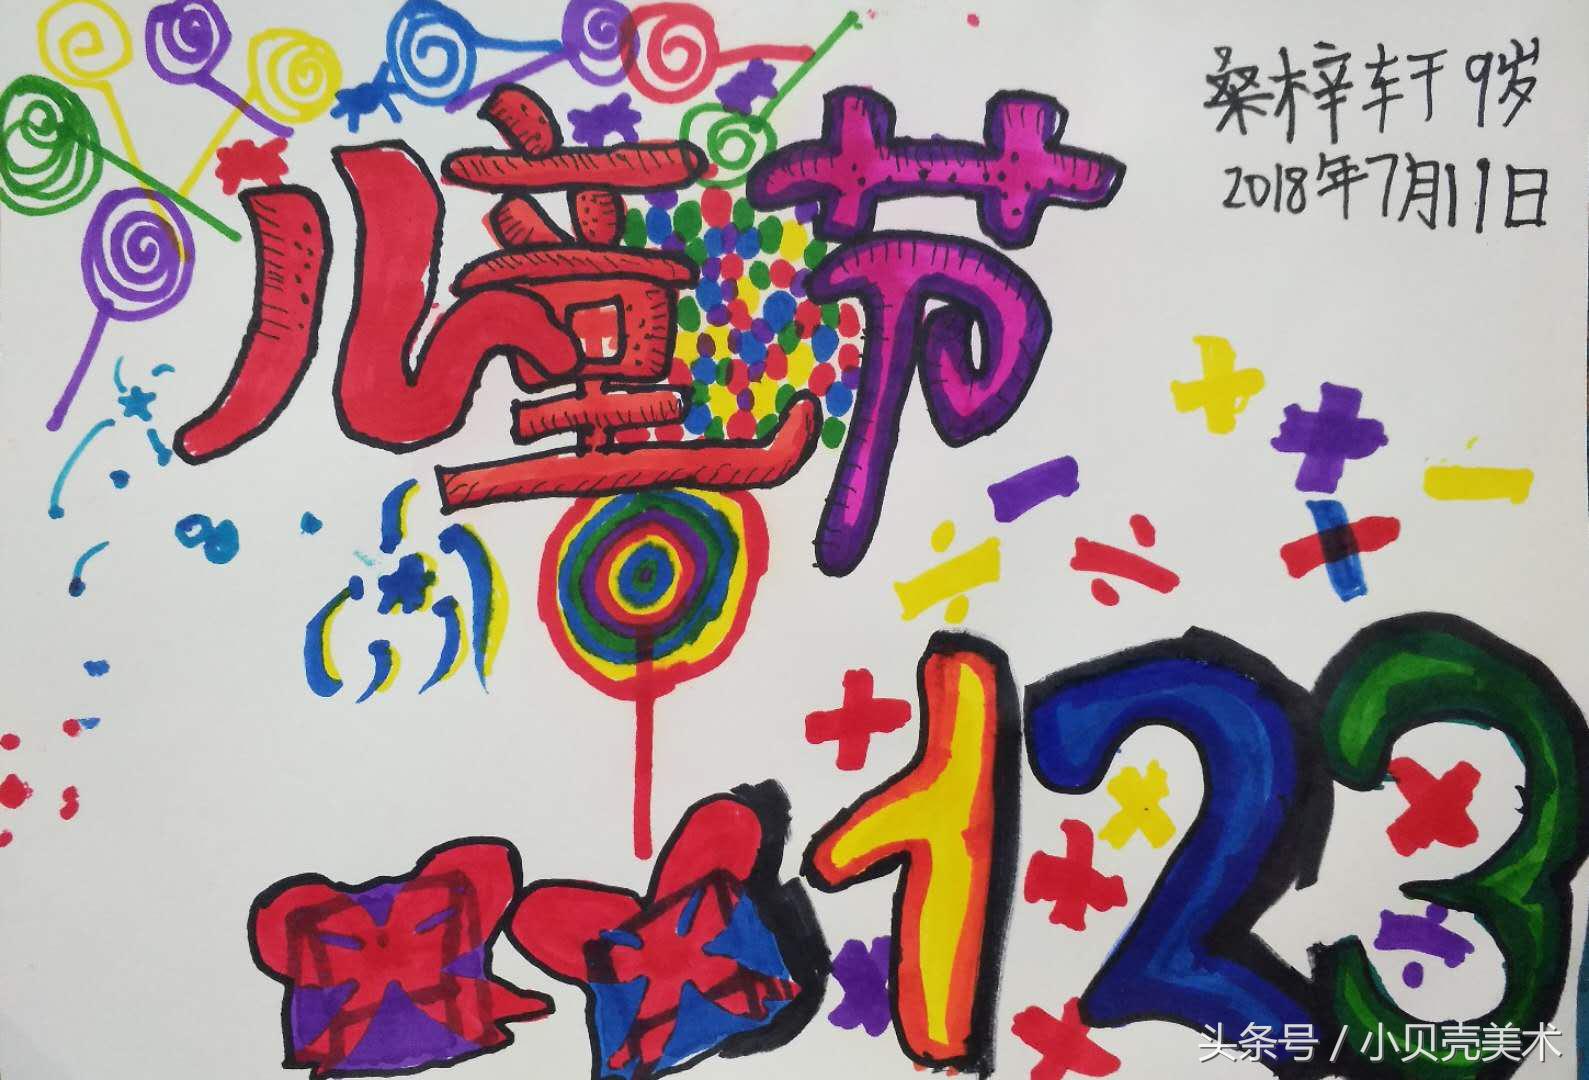 桑梓轩 9岁
2018年7月11日
儿童节
123
头条号 / 小贝壳美术